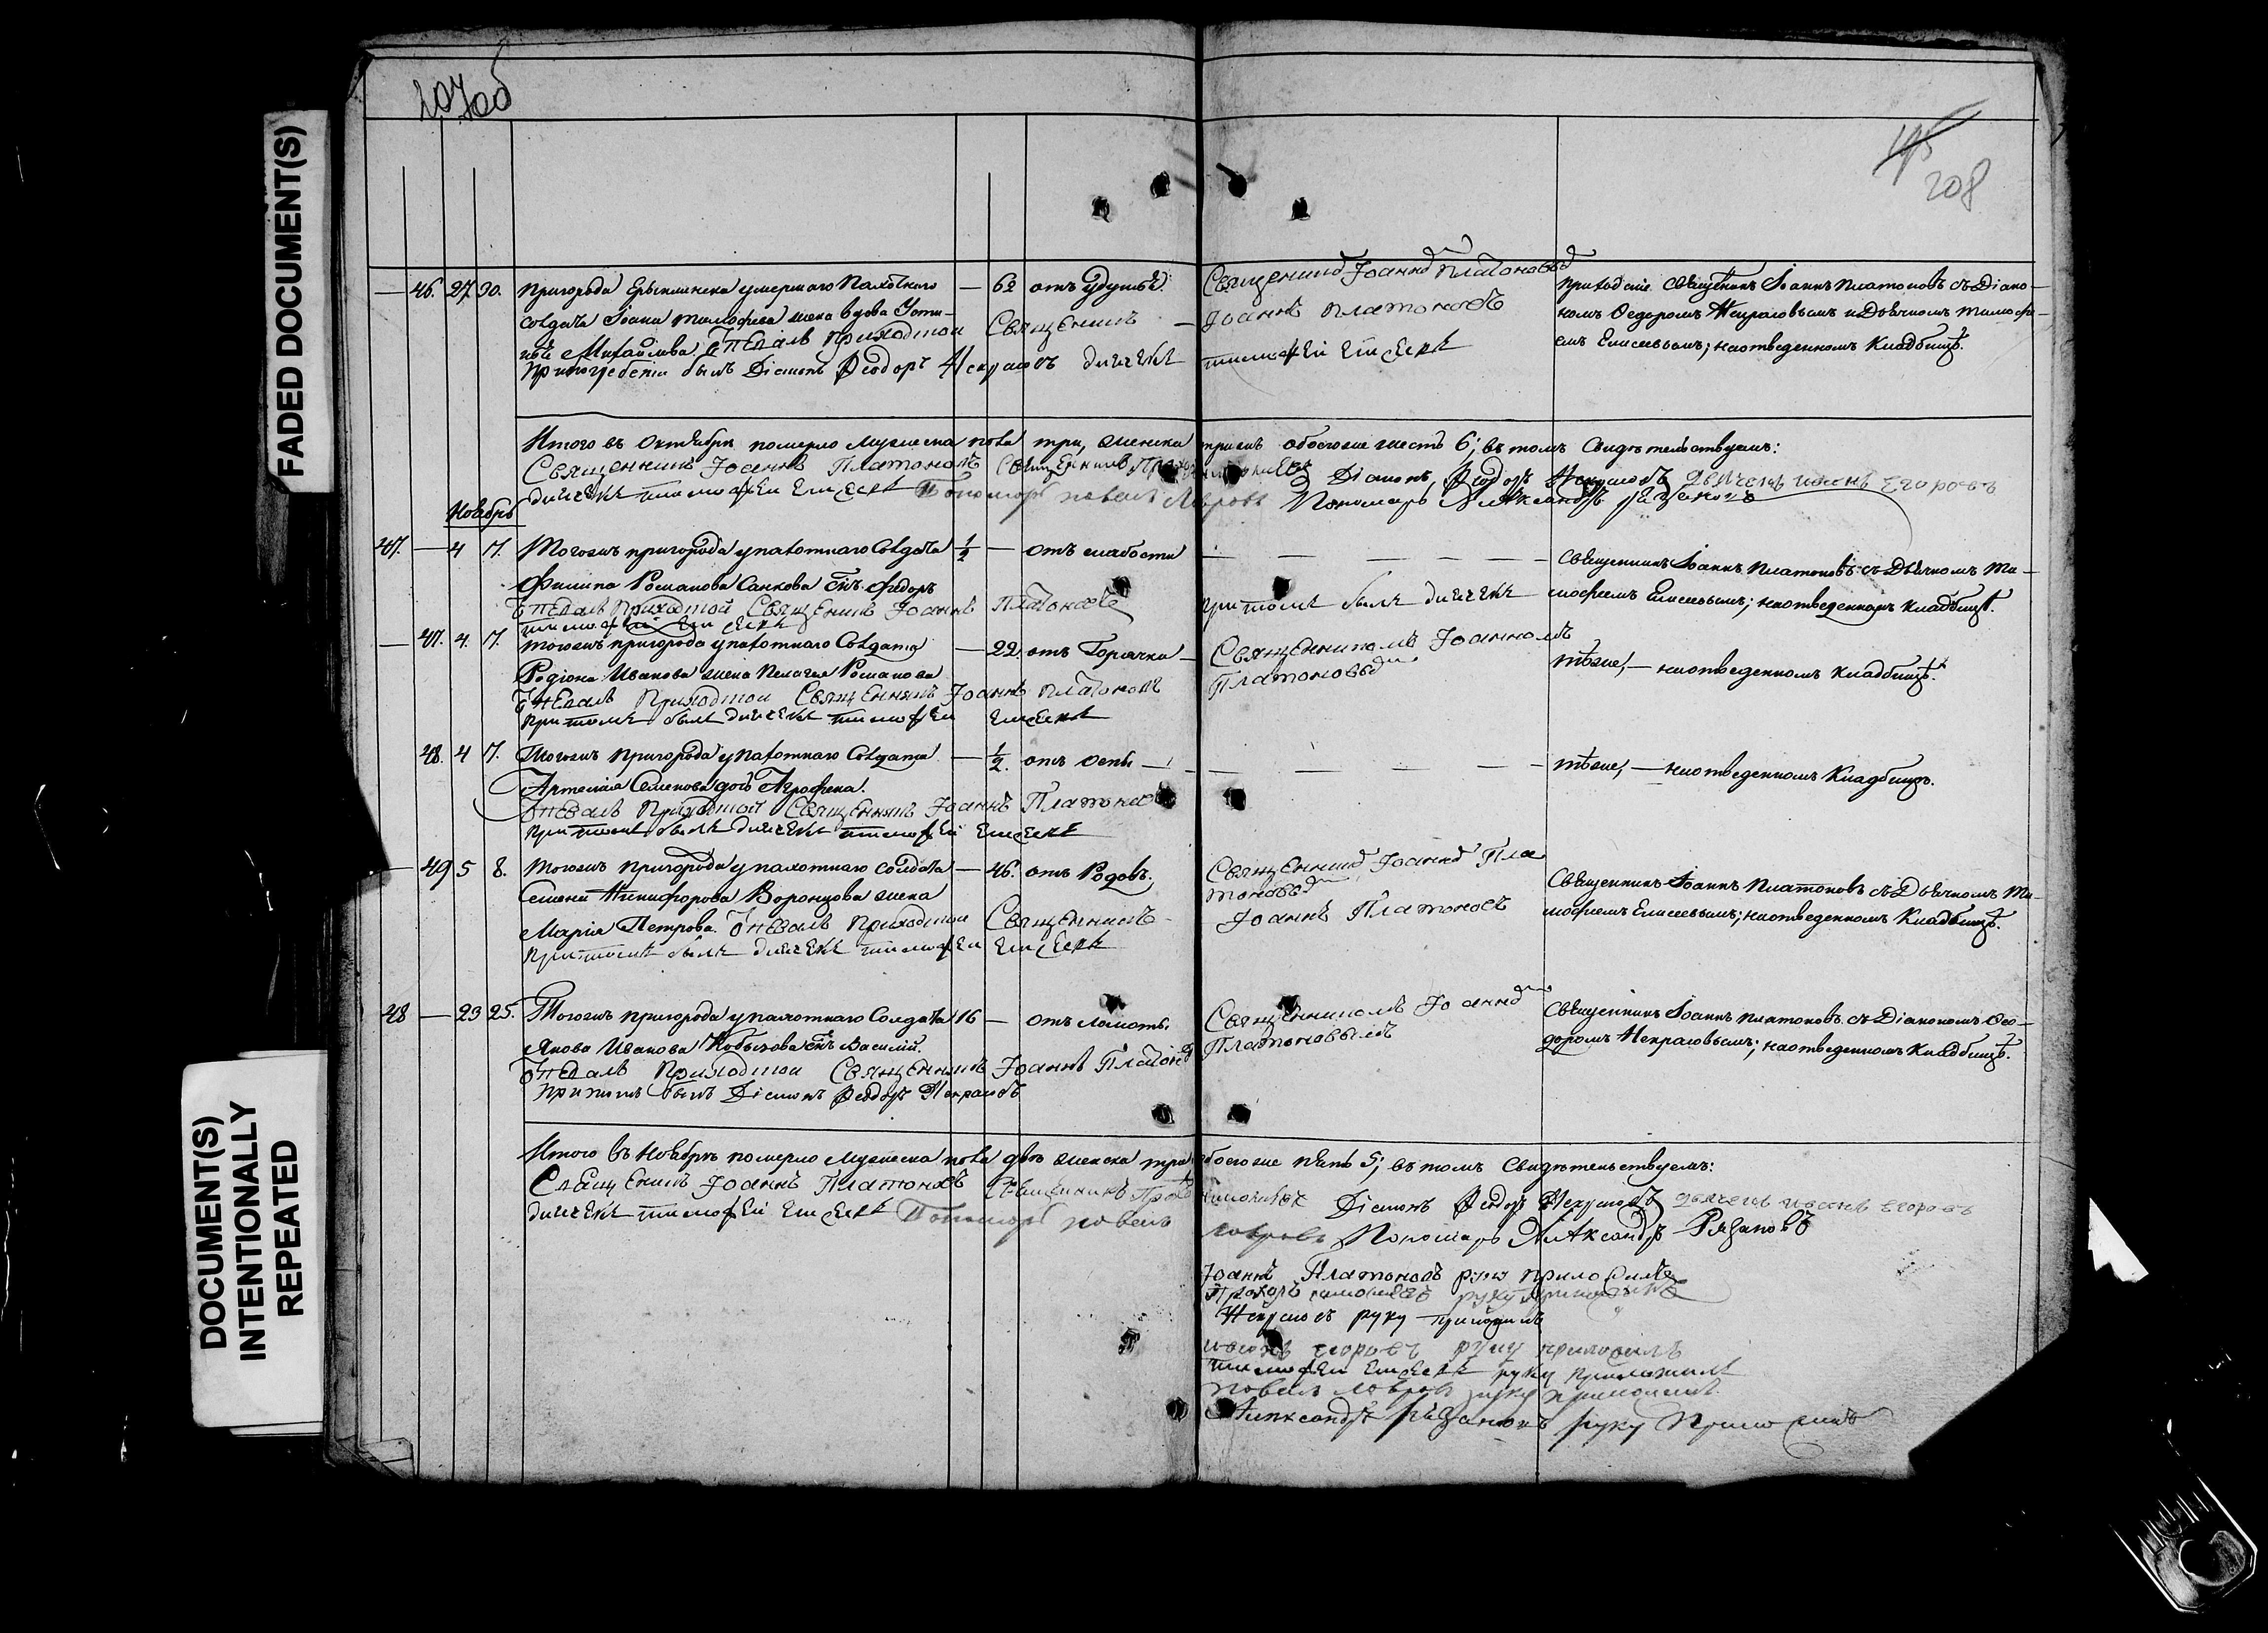 207 об
195
208
FADED DOCUMENT(S)
DOCUMENT(S)
INTENTIONALLY
REPEATED
— 46. 27. 30. Пригорода Ерыклинска умершаго Пахотнаго — 62 отъ удушья. Священникъ Іоаннъ Платоновъ
солдата Іоанна Тимофеева жена вдова Усти-
нья Михайлова. Отпевалъ Приходской Священникъ — Іоаннъ Платоновъ
При погребеніи былъ Діаконъ Феодоръ Некрасовъ дьячекъ тимофей Елисеевъ
Приходскіе Священникъ Іоаннъ Платоновъ съ Діако-
номъ Федоромъ Некрасовымъ и Дьячкомъ Тимофе-
емъ Елисеевымъ; на отведенномъ Кладбищѣ.
Итого въ Октябрѣ померло мужеска пола три, женска три жъ обоегоже шесть 6; въ томъ Свидѣтельствуемъ:
Священникъ Іоаннъ Платоновъ Священникъ Діаконъ Феодоръ Некрасовъ дьячекъ иванъ Егоровъ
дьячекъ тимофей Елисеевъ Пономарь павелъ Лавровъ Пономарь Александръ Рязановъ
Ноябрь
47. — 4 7. Тогожъ пригорода у пахотнаго Солдата 1/2 — отъ слабости — — — —
Филипа Романова Санкова сынъ Федоръ
Отпевалъ Приходской Священникъ Іоаннъ Платоновъ при томъ былъ дьячекъ
тимофей Елисеевъ
Священникъ Іоаннъ Платоновъ съ Дьячкомъ Ти-
мофеемъ Елисеевымъ; на отведенномъ кладбищѣ.
— 47. 4. 7. Тогожъ пригорода у пахотнаго Солдата — 22. отъ Горячки — Священникомъ Іоанномъ
Родіона Иванова жена Пелагея Романова Платоновымъ
Отпевалъ Приходской Священникъ Іоаннъ Платоновъ
при томъ былъ дьячекъ тимофей Елисеевъ
тѣже, — на отведенномъ Кладбищѣ.
48. 4 7. Тогожъ пригорода у пахотнаго Солдата — 1/2. отъ оспы — — — — —
Артемія Семенова дочь Агрофена.
Отпевалъ Приходской Священникъ Іоаннъ Платоновъ
при томъ былъ дьячекъ тимофей Елисеевъ
тѣже, — на отведенномъ Кладбищѣ.
— 49 5 8. Тогожъ пригорода у пахотнаго солдата — 46. отъ Родовъ. Священникъ Іоаннъ Пла
Семена Никифорова Воронцова жена тоновъ
Марія Петрова. Отпевалъ Приходской Священникъ — Іоаннъ Платоновъ
при томъ былъ дьячекъ тимофей Елисеевъ
Священникъ Іоаннъ Платоновъ съ Дьячкомъ Ти-
мофеемъ Елисеевымъ; на отведенномъ Кладбищѣ.
48 — 23 25. Тогожъ пригорода у пахотнаго Солдата 16 — отъ ломоты. Священникомъ Іоанномъ
Якова Иванова сынъ Василій. Платоновымъ
Отпевалъ Приходской Священникъ Іоаннъ Платоновъ
При томъ былъ Діаконъ Феодоръ Некрасовъ
Священникъ Іоаннъ Платоновъ съ Діакономъ Фео-
доромъ Некрасовымъ; на отведенномъ Кладбищѣ.
Итого въ Ноябрѣ померло мужеска пола два женска три обоегоже пять 5; въ томъ Свидѣтельствуемъ:
Священникъ Іоаннъ Платоновъ Священникъ Діаконъ Феодоръ Некрасовъ дьячекъ иванъ егоровъ
дьячекъ тимофей Елисеевъ Пономарь павелъ лавровъ Пономарь Александръ Рязановъ
Іоаннъ Платоновъ руку приложилъ
Прохоръ руку приложилъ
Некрасовъ руку приложилъ
иванъ егоровъ руку приложилъ
тимофей Елисеевъ руку приложилъ
павелъ лавровъ руку приложилъ
Александръ Рязановъ руку приложилъ